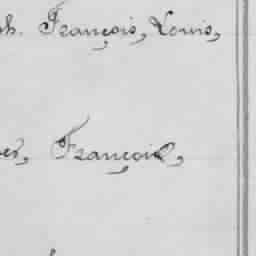 ph. François, Louis,
es, François,